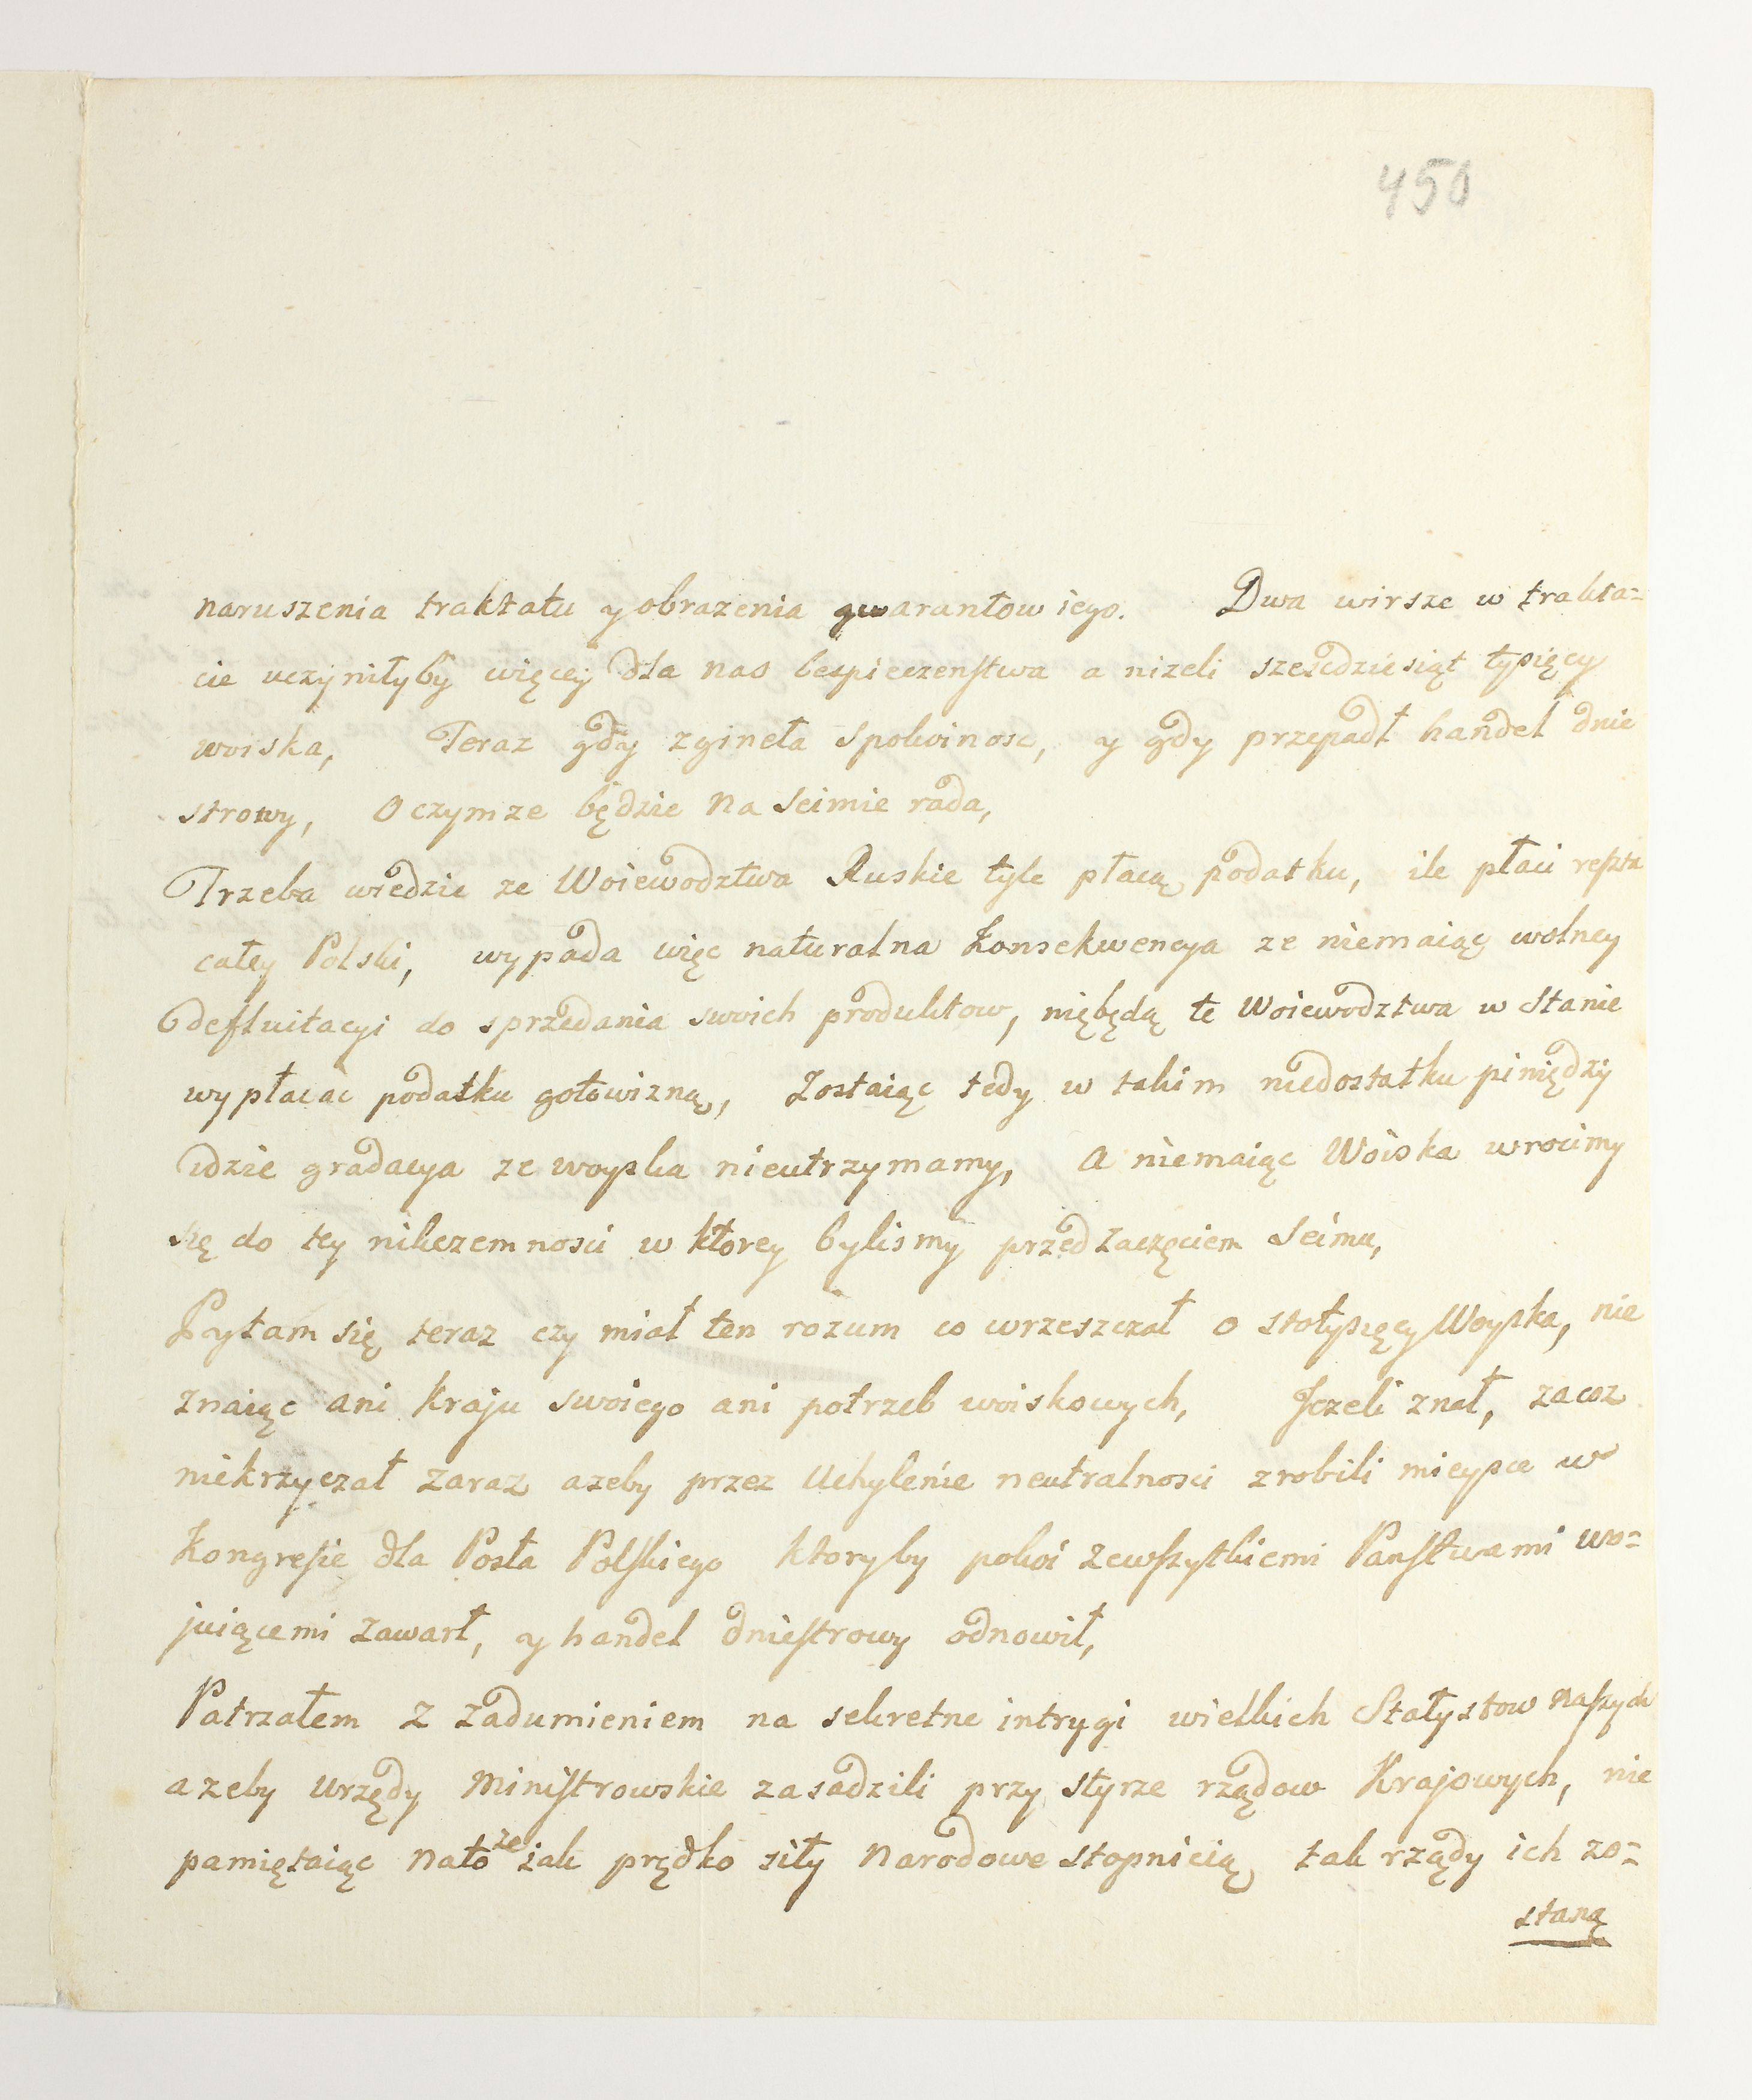 450
naruszenia traktatu y obrazenia gwarantow iego. Dwa wirsze w trakta=
cie uczyniłyby więcey dla nas bespieczenstwa a nizeli szescdziesiąt tysięcy
woiska, Teraz gdy zgineła spokoinosc, y gdy przepadł handel dnie
strowy, O czymze będzie na Seimie rada,
Trzeba wiedzic ze Woiewodztwa Ruskie tyle płacą podatku, ile płaci reszta
całey Polski, wypada więc naturalna konsekwencya ze niemaiąc wolney
defluitacyi do sprzedania swoich produktow, niębędą te Woiewodztwa w stanie
wypłacac podatku gotowizną, Zostaiąc tedy w takim niedostatku piniędzy
idzie gradacya ze woyska nieutrzymamy, a niemaiąc Woiska wrocimy
się do tey nikczemnosci w ktorey bylismy przed zaczęciem Seimu,
Pytam się teraz czy miał ten rozum co wrzeszczał o stotysięcy Woyska, nie
znaiąc ani kraju swoiego ani potrzeb woiskowych, Jezeli znał, zacoz
niekrzyczał zaraz azeby przez Uchylenie neutralnosci zrobili mieysce w
Kongresie dla Posła Polskiego ktoryby pokoi zewszytkiemi Panstwami wo=
juiącemi zawarł, y handel dniestrowy odnowił,
Patrzałem z zadumieniem na sekretne intrygi wielkich Statystow naszych
azeby urzędy Ministrowskie zasadzili przy styrze rządow Krajowych, nie
pamiętaiąc nato ze iak prędko siły Narodowe stopnieią, tak rządy ich zo=
staną